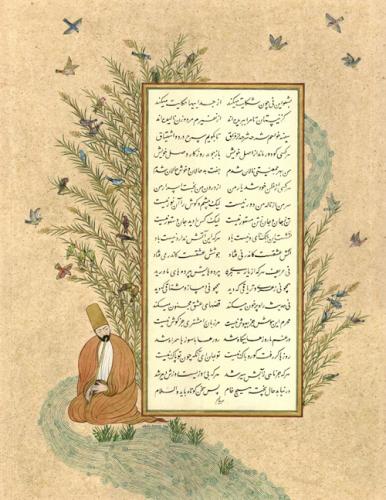 بشنو این نی چون شکایت میکند از جداییها حکایت میکند
کز نیستان تا مرا ببریده‌اند از نفیرم مرد و زن نالیده‌اند
سینه خواهم شرحه شرحه از فراق تا بگویم شرح درد اشتیاق
هر کسی کو دور ماند از اصل خویش باز جوید روزگار وصل خویش
من بهر جمعیتی نالان شدم جفت بدحالان و خوشحالان شدم
هر کسی از ظن خود شد یار من از درون من نجست اسرار من
سر من از ناله من دور نیست لیک چشم و گوش را آن نور نیست
تن ز جان و جان ز تن مستور نیست لیک کس را دید جان دستور نیست
آتشست این بانگ نای و نیست باد هر که این آتش ندارد نیست باد
آتش عشقست کاندر نی فتاد جوشش عشقست کاندر می فتاد
نی حریف هر که از یاری برید پرده‌هایش پرده‌های ما درید
همچو نی زهری و تریاقی که دید همچو نی دمساز و مشتاقی که دید
نی حدیث راه پر خون میکند قصه‌های عشق مجنون میکند
محرم این هوش جز بیهوش نیست مر زبان را مشتری جز گوش نیست
در غم ما روزها بیگاه شد روزها با سوزها همراه شد
روزها گر رفت گو رو باک نیست تو بمان ای آنکه چون تو پاک نیست
هر که جز ماهی ز آبش سیر شد هر که بی روزیست روزش دیر شد
درنیابد حال پخته هیچ خام پس سخن کوتاه باید والسلام